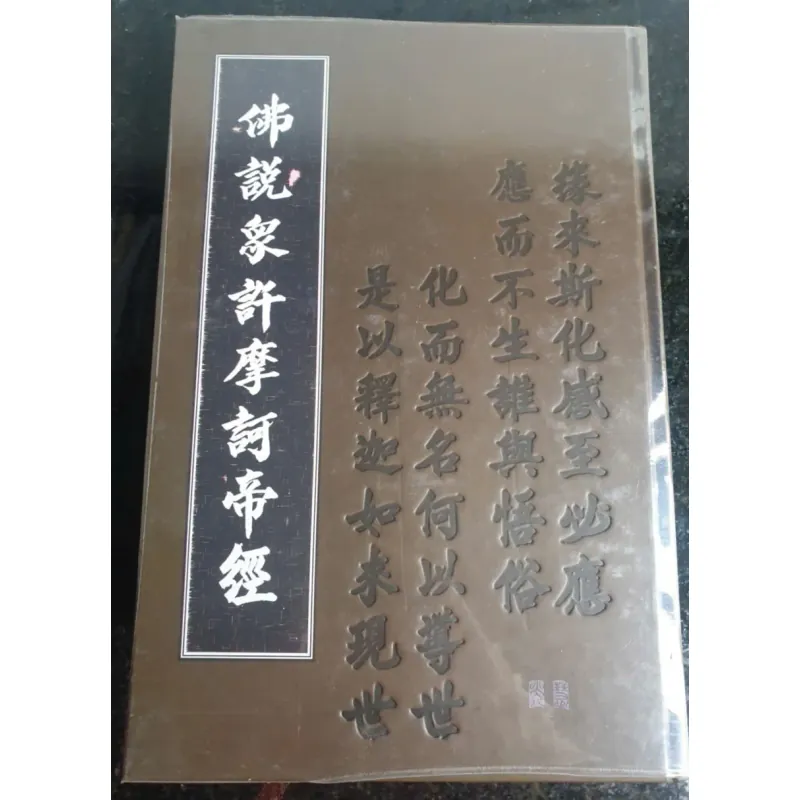 佛説衆許摩訶帝經
緣來斯化感至必應
應而不生誰與悟俗
化而無名何以導世
是以釋迦如来現世